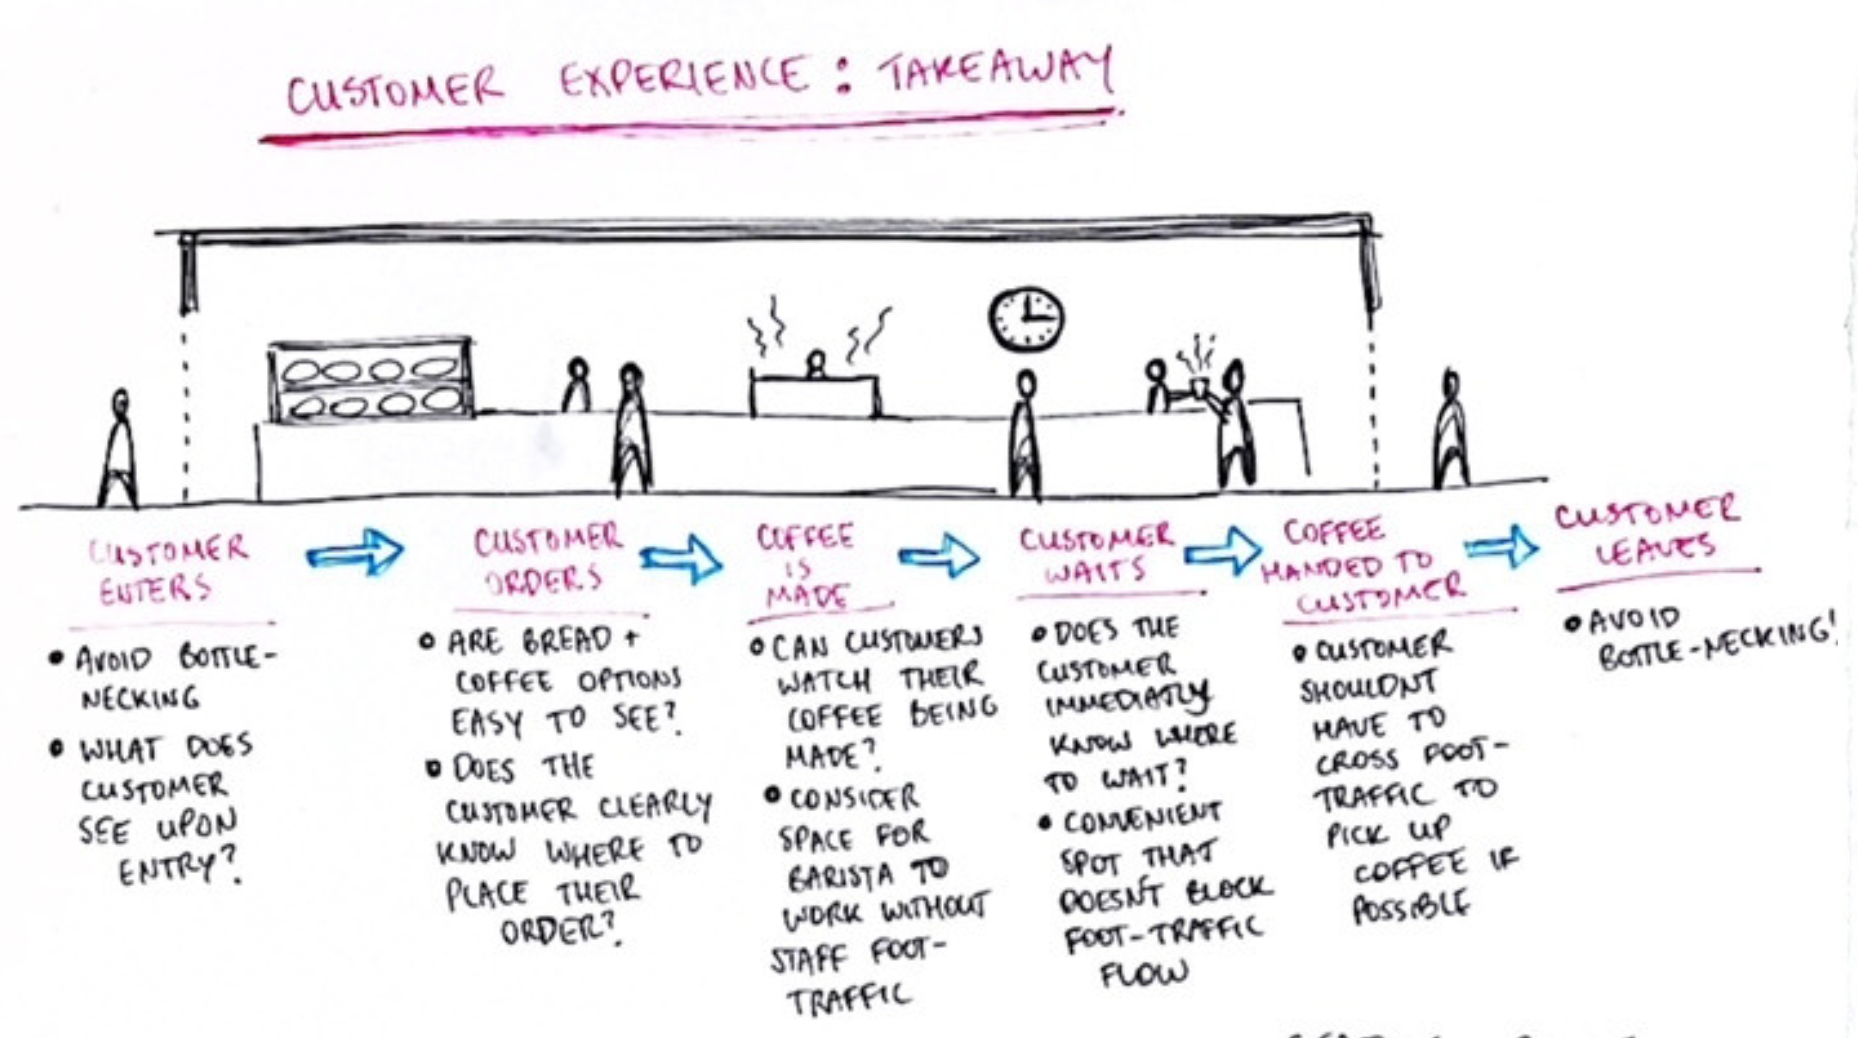 CUSTOMER EXPERIENCE: TAKEAWAY
CUSTOMER
ENTERS
• AVOID BOTTLE-
NECKING
• WHAT DOES
CUSTOMER
SEE UPON
ENTRY?
CUSTOMER
ORDERS
• ARE BREAD +
COFFEE OPTIONS
EASY TO SEE?
• DOES THE
CUSTOMER CLEARLY
KNOW WHERE TO
PLACE THEIR
ORDER?
COFFEE
IS
MADE
• CAN CUSTOMERS
WATCH THEIR
COFFEE BEING
MADE?
• CONSIDER
SPACE FOR
BARISTA TO
WORK WITHOUT
STAFF FOOT-
TRAFFIC
CUSTOMER
WAITS
• DOES THE
CUSTOMER
IMMEDIATLY
KNOW WHERE
TO WAIT?
• CONVENIENT
SPOT THAT
DOESN'T BLOCK
FOOT-TRAFFIC
FLOW
COFFEE
HANDED TO
CUSTOMER
• CUSTOMER
SHOULDNT
HAVE TO
CROSS FOOT-
TRAFFIC TO
PICK UP
COFFEE IF
POSSIBLE
CUSTOMER
LEAVES
• AVOID
BOTTLE-NECKING!